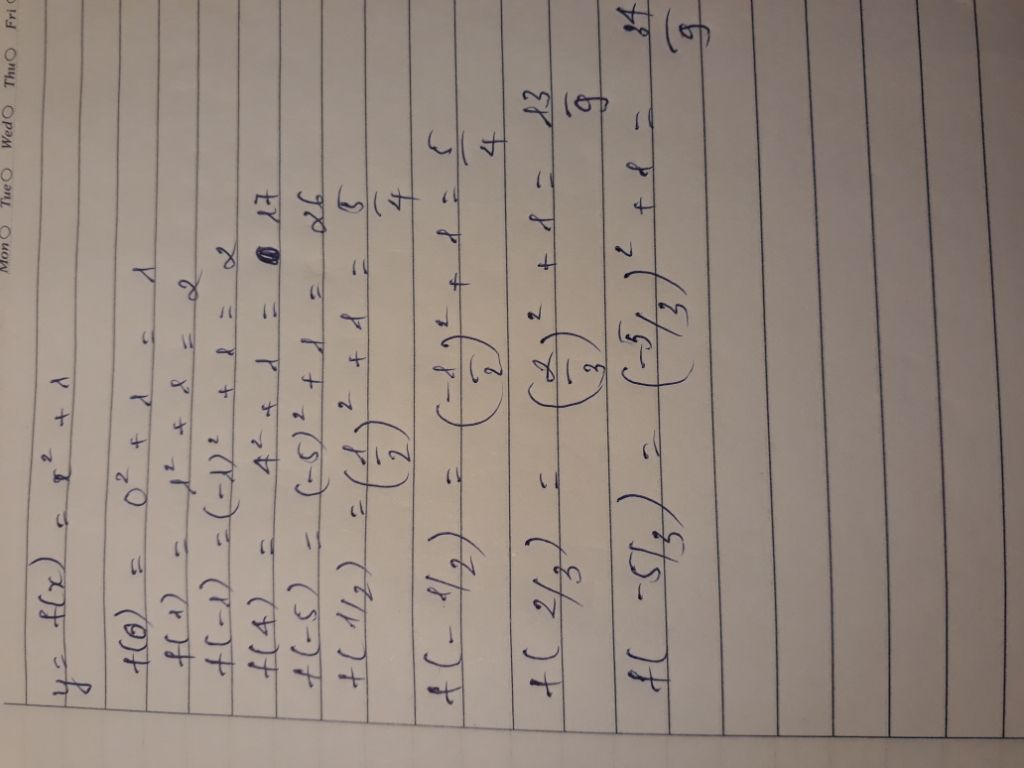 Mon Tue Wed Thu Fri
y = f(x) = x² + 1
f(0) = 0² + 1 = 1
f(1) = 1² + 1 = 2
f(-1) = (-1)² + 1 = 2
f(4) = 4² + 1 = 17
f(-5) = (-5)² + 1 = 26
f(1/2) = (1/2)² + 1 = 5/4
f(-1/2) = (-1/2)² + 1 = 5/4
f(2/3) = (2/3)² + 1 = 13/9
f(-5/3) = (-5/3)² + 1 = 34/9